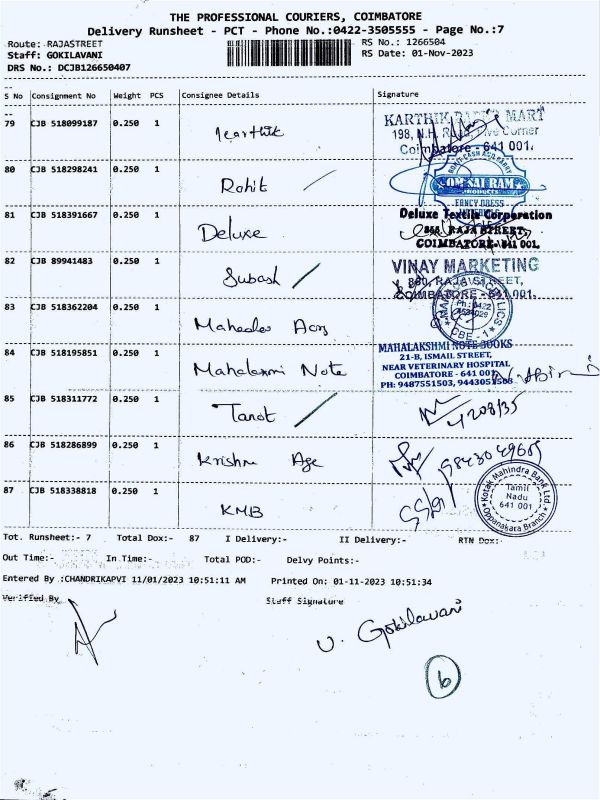 THE PROFESSIONAL COURIERS, COIMBATORE
Delivery Runsheet - PCT - Phone No.:0422-3505555 - Page No.:7
Route: RAJASTREET RS No.: 1266504
Staff: GOKILAVANI RS Date: 01-Nov-2023
DRS No.: DCJB126650407
S No Consignment No Weight PCS Consignee Details Signature
79 CJB 518099187 0.250 1 Karthik
KARTHIK PAPER MART
198, N.H. Road, Five Corner
Coimbatore - 641 001.
80 CJB 518298241 0.250 1 Rohit
OM SAI RAM
PRODUCTS
FANCY DRESS
81 CJB 518391667 0.250 1 Deluxe
Deluxe Textile Corporation
RAJA STREET,
COIMBATORE-641 001.
82 CJB 89941483 0.250 1 Subash
VINAY MARKETING
RAJA STREET,
COIMBATORE - 641 001.
83 CJB 518362204 0.250 1 Mahadev
Ph : 0422
CBE - 1
84 CJB 518195851 0.250 1 Mahalaxmi Note
MAHALAKSHMI NOTE BOOKS
21-B, ISMAIL STREET,
NEAR VETERINARY HOSPITAL
COIMBATORE - 641 001.
PH: 9487551503, 9443051508
85 CJB 518311772 0.250 1 Tanot
86 CJB 518286899 0.250 1 Krishna Age
87 CJB 518338818 0.250 1 KMB
Kotak Mahindra Bank Ltd.
Tamil
Nadu
641 001
Oppanakara Branch
Tot. Runsheet:- 7 Total Dox:- 87 I Delivery:- II Delivery:- RTN Dox:-
Out Time:- In.Time:- Total POD:- Delvy Points:-
Entered By :CHANDRIKAPVI 11/01/2023 10:51:11 AM Printed On: 01-11-2023 10:51:34
Verified By Staff Signature
V. Gokilavani
6